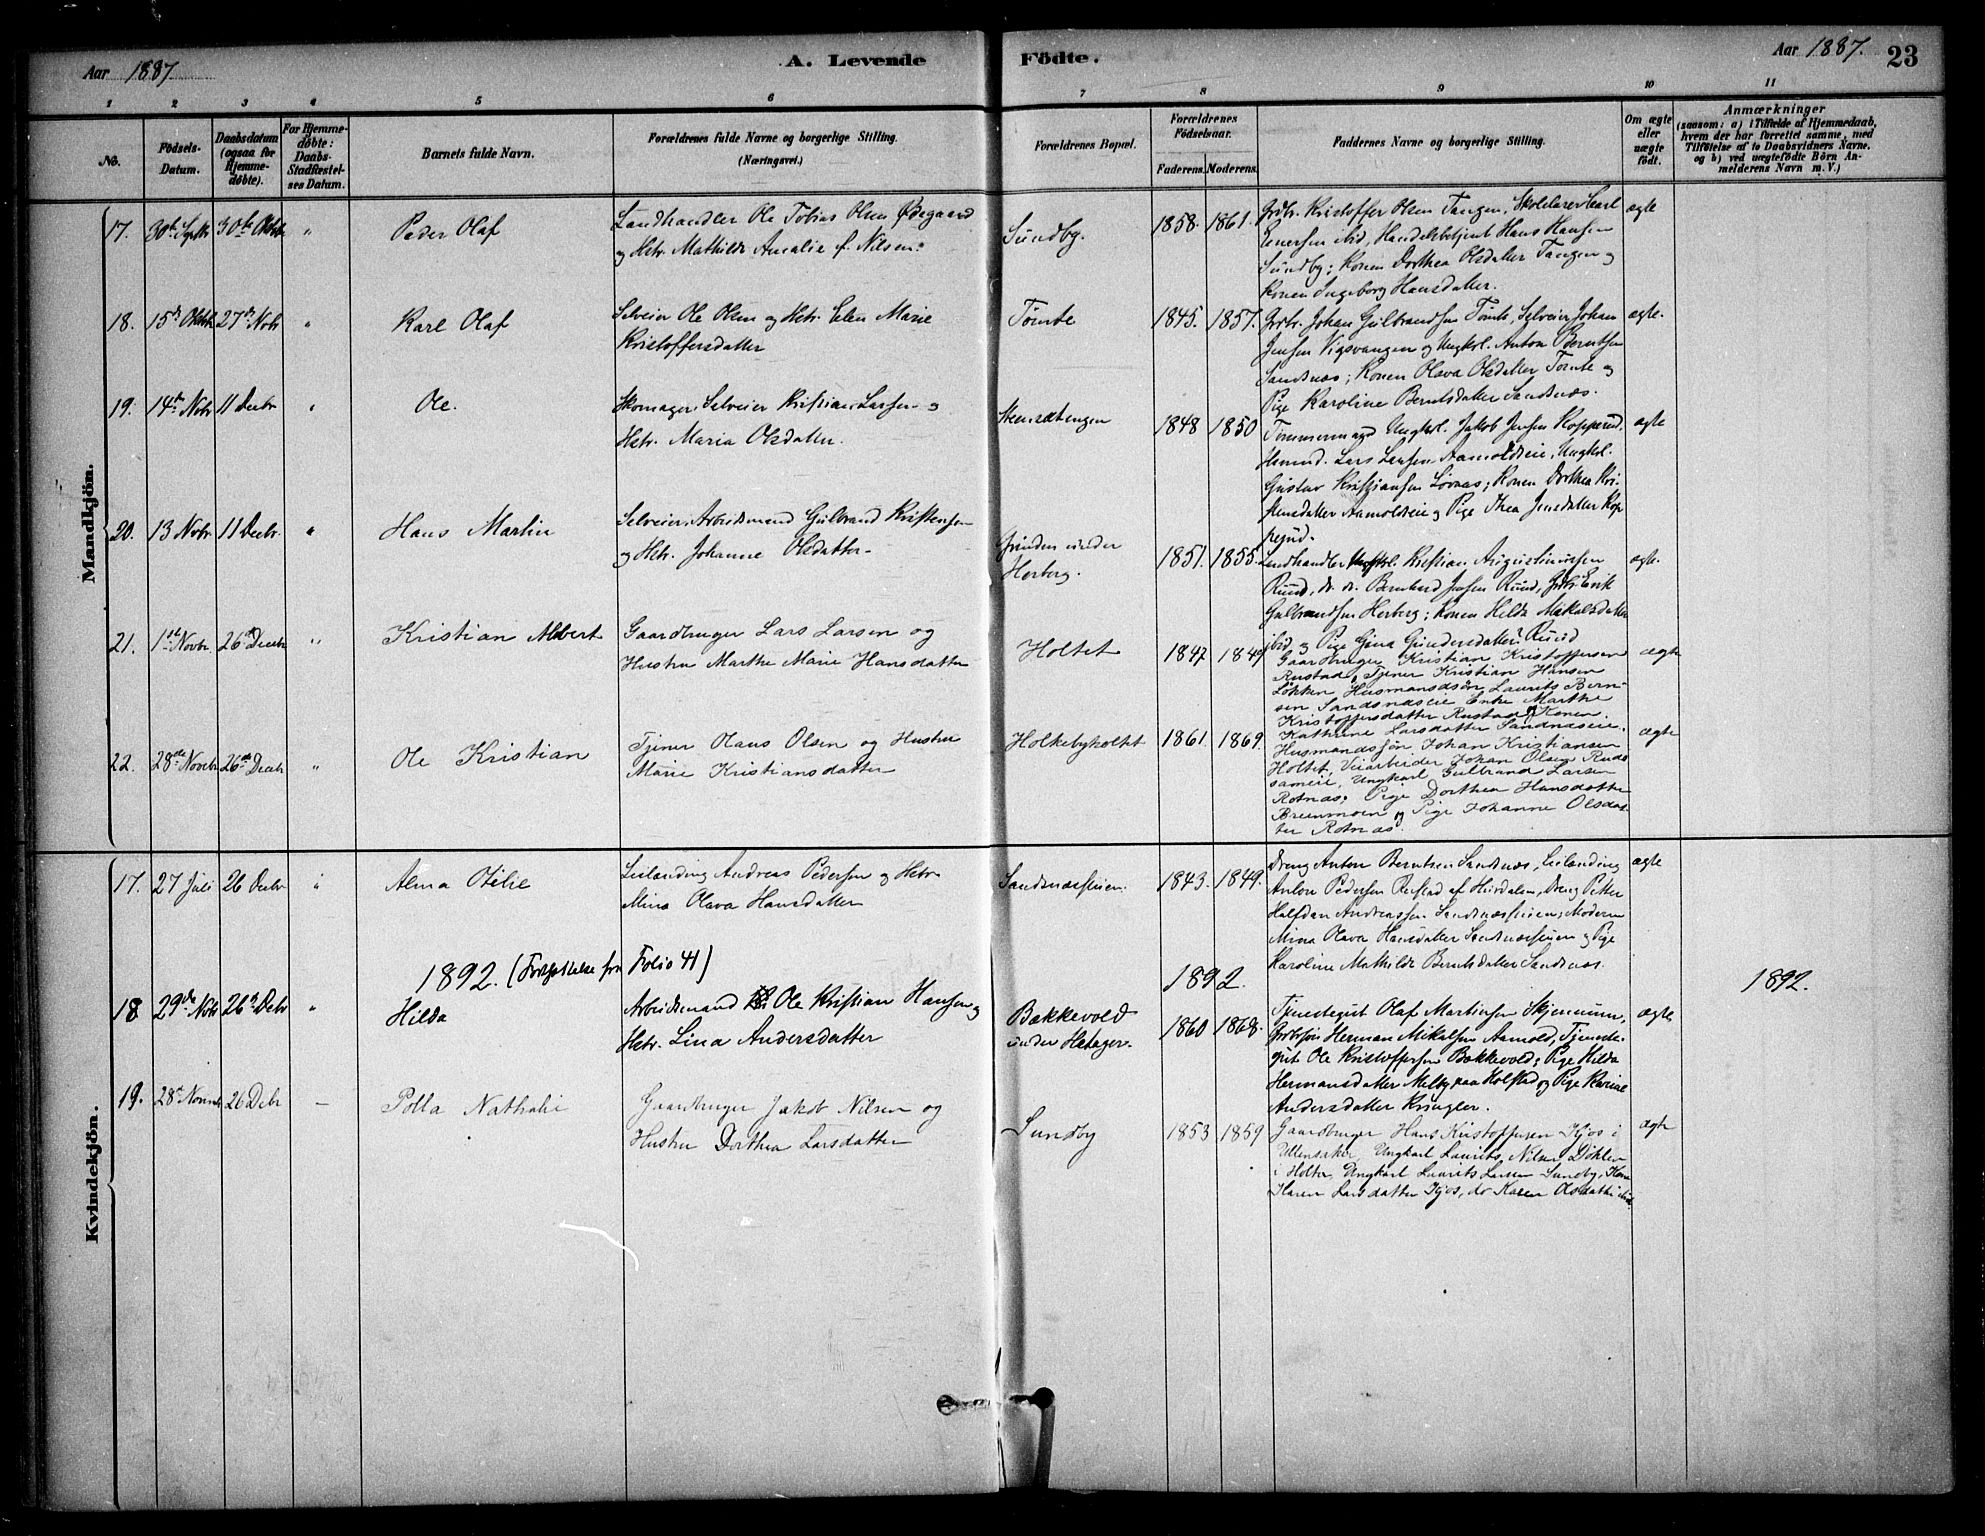 Aar 1887.
A. Levende
Födte.
Aar 1887. 23
1 2 3 4 5 6 7 8 9 10 11
No.
Födsels-
Datum.
Daabsdatum
(ogsaa for
Hjemme-
döbte).
For Hjemme-
döbte:
Daabs-
Stadfæstel-
ses Datum.
Barnets fulde Navn.
Forældrenes fulde Navne og borgerlige Stilling.
(Næringsvei.)
Forældrenes Bopæl.
Forældrenes
Födselsaar.
Faderens. Moderens.
Faddernes Navne og borgerlige Stilling.
Om ægte
eller
uægte
födt.
Anmærkninger
(saasom: a) i Tilfælde af Hjemmedaab,
hvem der har forrettet samme, med
Tilföielse af to Daabsvidners Navne.
og b) ved uægtefödte Börn An-
melderens Navn m. V.)
Mandkjön.
17. 30te Septbr 30te Oktbr " Peder Olaf
Landhandler Ole Tobias Olsen Ødegaard
og Hstr. Mathilde Amalie f. Nilsen.
Sundby. 1858. 1861.
Grdbr. Kristoffer Olsen Tangen, Skolelærer Carl
Enersen ibid, Handelsbetjent Hans Hansen
Sundby; Konen Dorthea Olsdatter Tangen og
Konen Ingeborg Hansdatter.
ægte
18. 15de Oktbr 27de Novbr " Karl Olaf
Selveier Ole Olsen og Hstr. Elen Marie
Kristoffersdatter
Tomte 1845. 1857.
Grdbr. Johan Gulbrandsen Tomte, Selveier Johan
Jensen Vigsvangen og Ungkrl. Anton Berntsen
Sandsnæs; Konen Olava Olsdatter Tomte og
Pige Karoline Berntsdatter Sandsnæs.
ægte.
19. 14de Novbr 11 Decbr " Ole.
Skomager, Selveier Kristian Larsen og
Hstr. Maria Olsdatter.
Stensætengen 1848 1850
Tømmermand Ungkrl. Jakob Jensen Kopperud,
Husmd. Lars Larsen Aamoldseie, Ungkrl.
Gustav Kristiansen Løvnæs; Konen Dorthea Kri-
stensdatter Aamoldseie og Pige Thea Jensdatter Kop-
perud.
ægte
20. 13 Novbr 11 Decbr. " Hans Martin
Selveier, Arbeidsmand Gulbrand Kristensen
og Hstr. Johanne Olsdatter
Grinden under
Herberg. 1851. 1855.
Landhandler Ungkrl. Kristian Augustinussen
Ruud, do. do. Bernhard Jensen Ruud, Grdbr. Erik
Gulbrandsen Herberg; Konen Helda Mikalsdatter
ibid og Pige Gina Gundersdatter Ruud
ægte.
21. 1ste Novbr. 26de Decbr " Kristian Albert
Gaardbruger Lars Larsen og
Hustru Marthe Marie Hansdatter
Holtet 1847 1849
Gaardbruger Kristian Kristoffersen
Rustad, Tjener Kristian Hansen
Løkken Husmandsøn Laurits Bern-
sen Sandsnæseie Enke Marthe
Kristoffersdatter Rustad og Konen
Kathrine Larsdatter Sandnæseie.
ægte
22. 28de Novbr 26de Decbr " Ole Kristian
Tjener Olaus Olsen og Hustru
Marie Kristiansdatter
Holkebyholtet 1861. 1869.
Husmandssøn Johan Kristiansen
Holtet, Veiarbeider Johan Olsen Ruds-
sameie, Ungkarl Gulbrand Larsen
Rotnæs; Pige Dorthea Hansdatter
Breenmoen og Pige Johanne Olsdat-
ter Rotnæs.
ægte
Kvindekjön.
17. 27 Juli 26 Decbr " Alma Otilie
Leilænding Andreas Pedersen og Hstr.
Mina Olava Hansdatter
Sandsnæsseien. 1843. 1849.
Dreng Anton Berntsen Sandsnæs, Leilænding
Anton Pedersen Rustad af Hurdalen, Dreng Petter
Halfdan Andreassen Sandsnæsseien; Moderen
Mina Olava Hansdatter Sandsnæsseien og Pige
Karoline Mathilde Berntsdatter Sandsnæs.
ægte
1892. (Fortsættelse fra Folio 41) 1892. 1892.
18 29de Novbr 26de Decbr " Hilda
Arbeidsmand Ole Kristian Hansen og
Hstr. Lina Andersdatter
Bækkevold
under Hstager. 1860 1868.
Tjenestegut Olaf Martinsen Skjennum,
Grdbrsøn Herman Mikalsen Aamold, Tjeneste-
gut Ole Kristoffersen Bækkevold; Pige Hilda
Hermansdatter Melby paa Holstad og Pige Karine
Andersdatter Kringler.
ægte
19. 28de Novmbr 26 Decbr – Polla Nathalie
Gaardbruger Jakob Nilsen og
Hustru Dorthea Larsdatter
Sundby 1853 1859
Gaardbruger Hans Kristoffersen Kjos i
Ullensaker, Ungkarl Laurits Nilsen Døhlen
i Holter, Ungkarl Laurits Larsen Sundby, Kone
Karen Larsdatter Kjos, do Karen Olsdatter ibid.
ægte